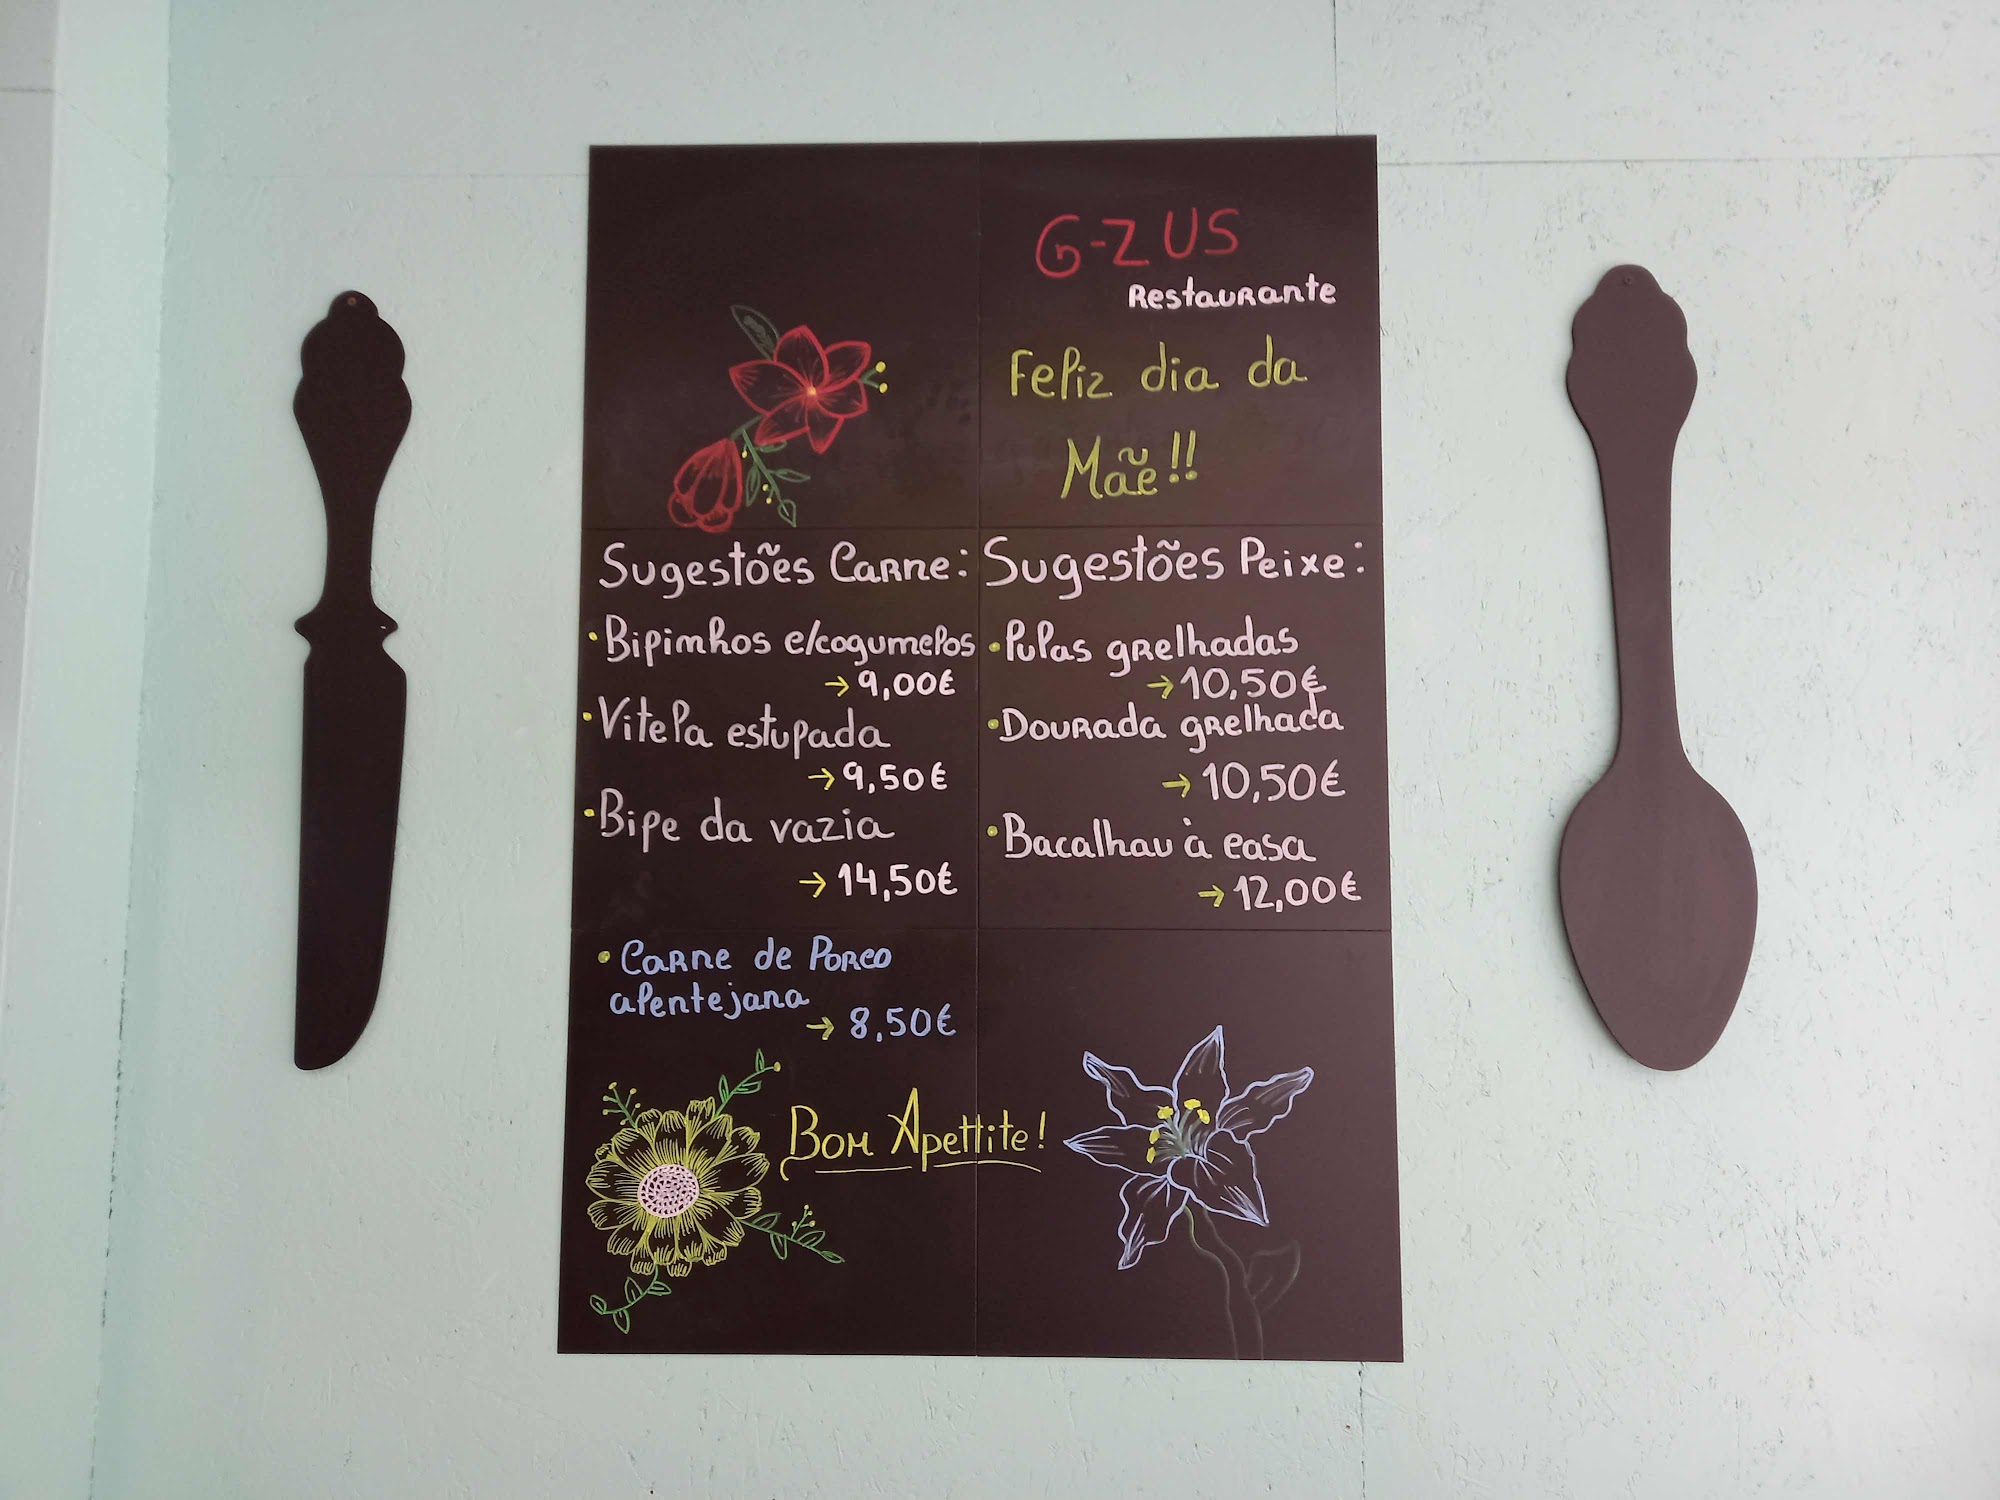 G-ZUS
Restaurante
Feliz dia da
Mãe!!
Sugestões Carne:
• Bifinhos c/cogumelos
→ 9,00€
• Vitela estufada
→ 9,50€
• Bife da vazia
→ 14,50€
• Carne de Porco
alentejana
→ 8,50€
Sugestões Peixe:
• Lulas grelhadas
→ 10,50€
• Dourada grelhada
→ 10,50€
• Bacalhau à casa
→ 12,00€
Bom Apettite!